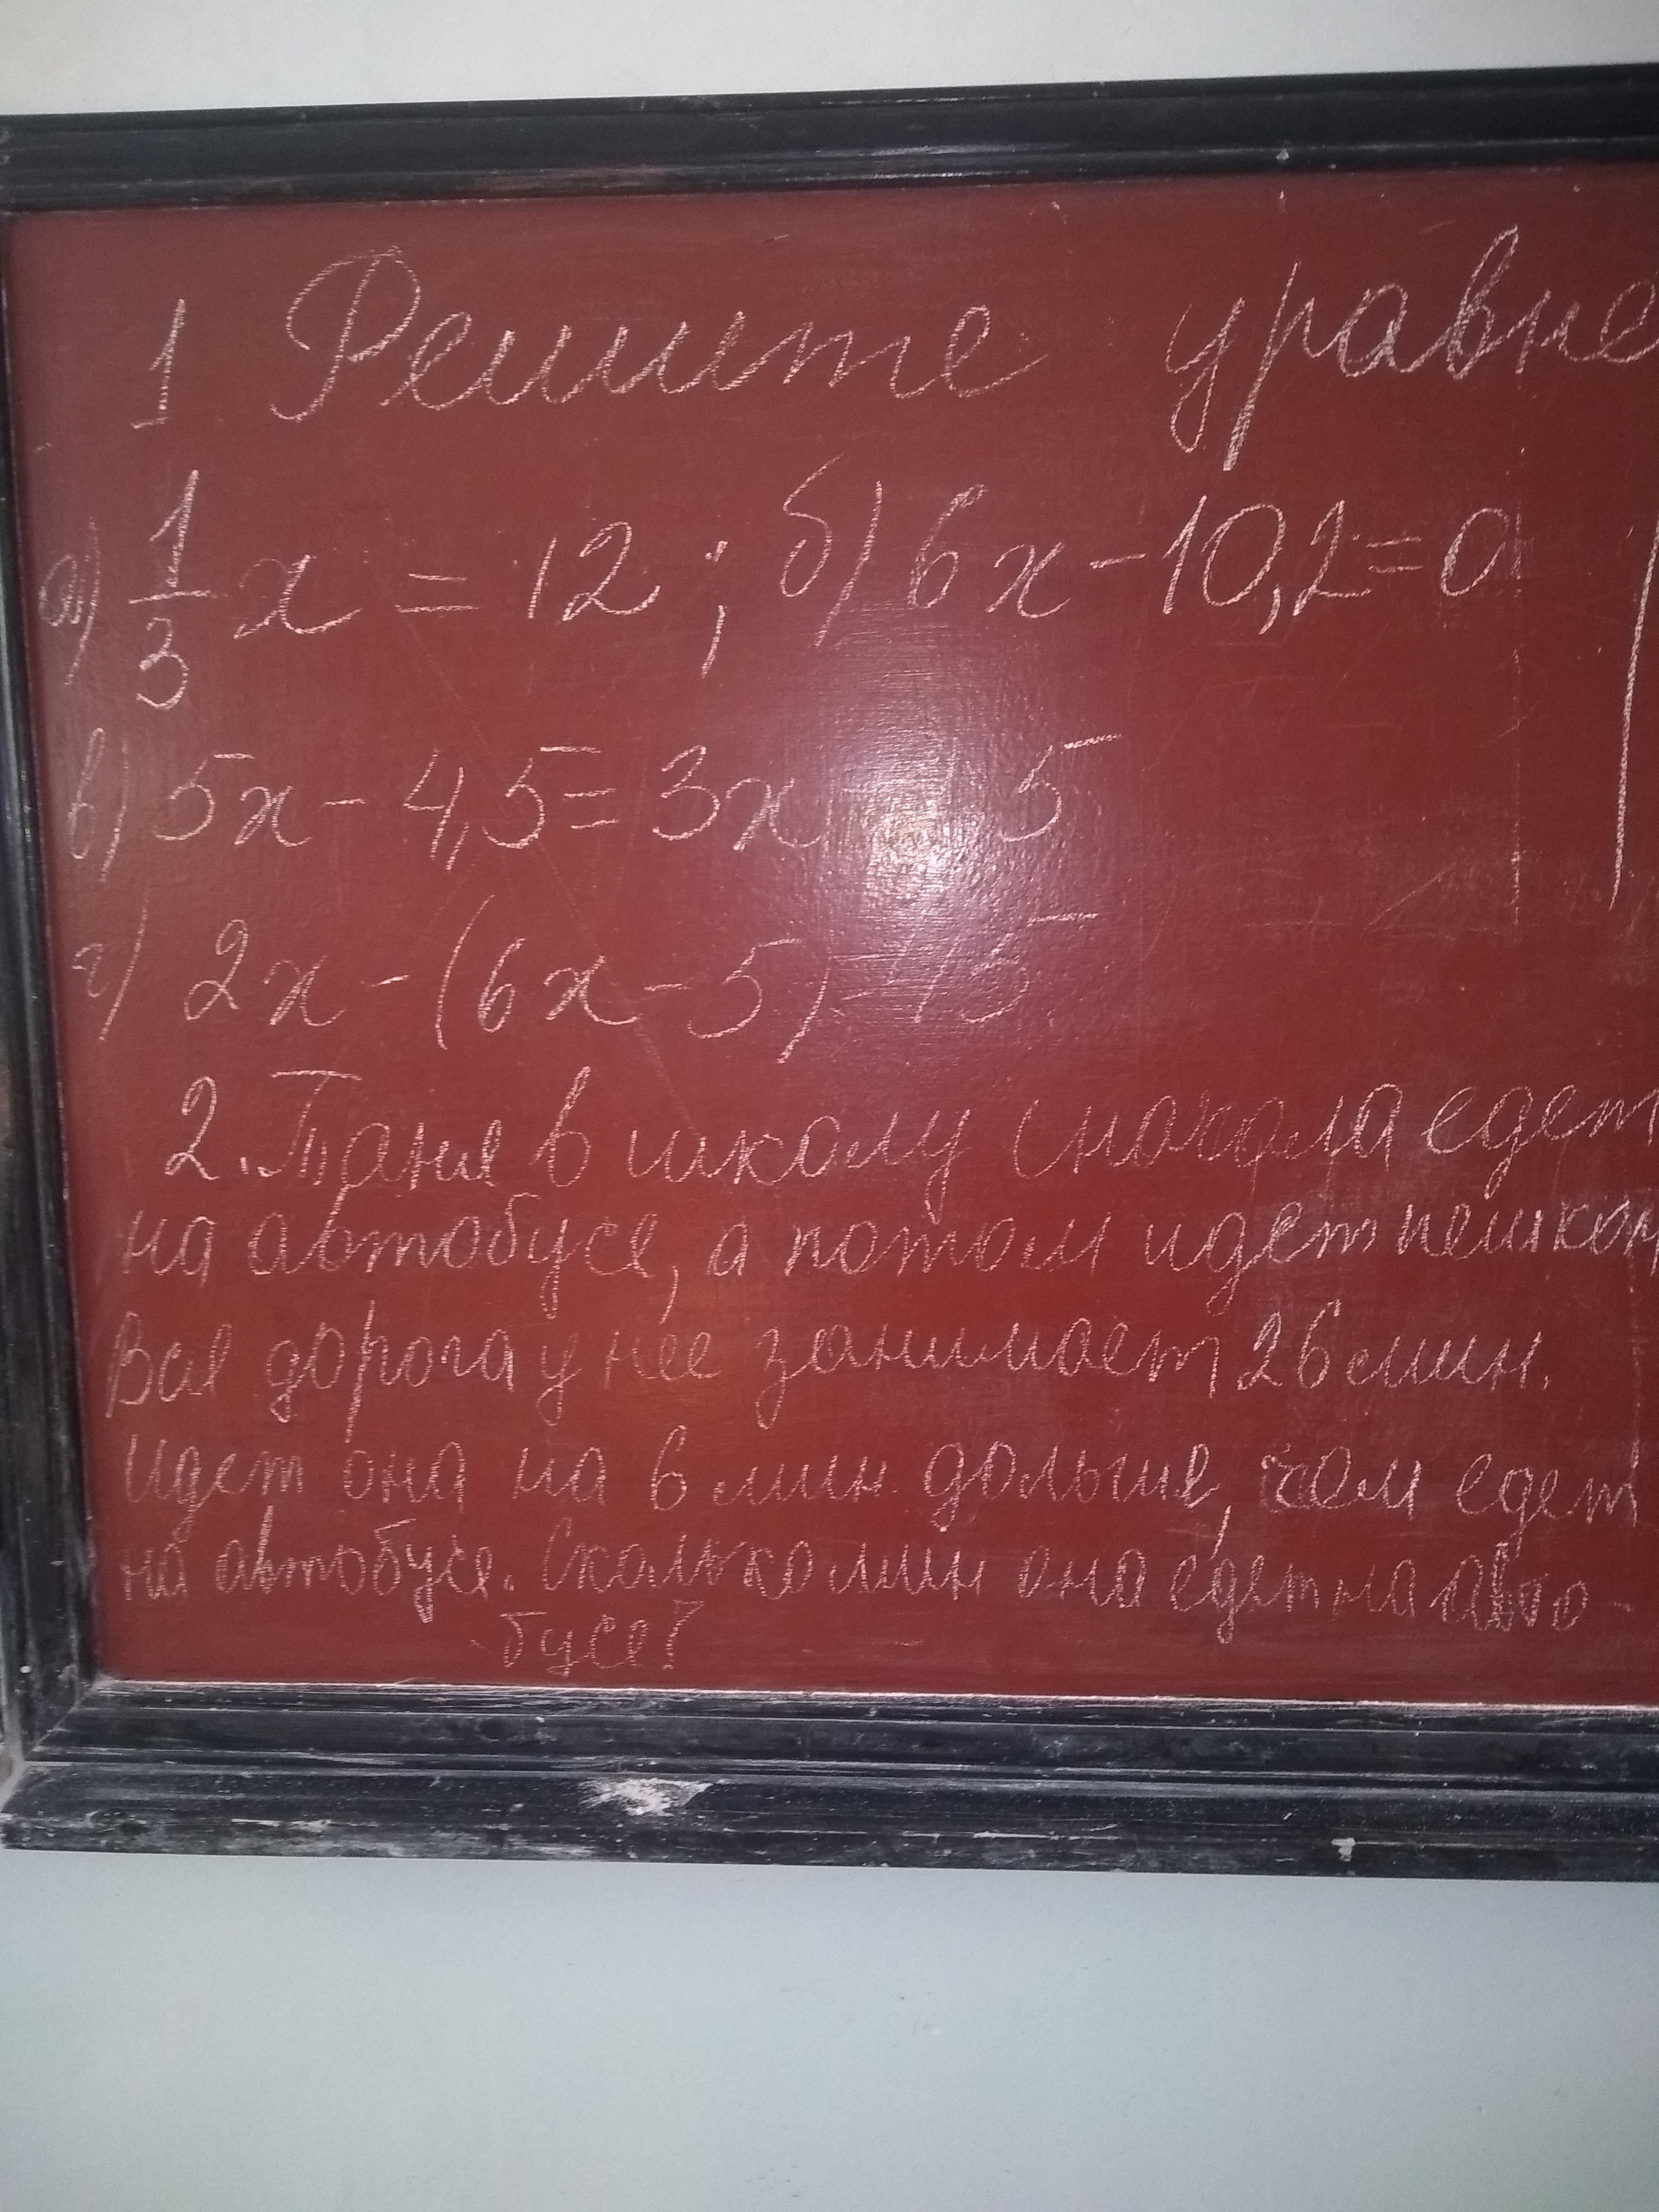 1 Решите уравне
а) 1/3 x = 12; б) 6x - 10,2 = 0
в) 5x - 4,5 = 3x 5
г) 2x - (6x - 5) 15
2. Таня в школу сначала едет
на автобусе, а потом идет пешком
Вся дорога у нее занимает 26 мин.
Идет она на 6 мин. дольше, чем едет
на автобусе. Сколько мин она едет на авто-
бусе?